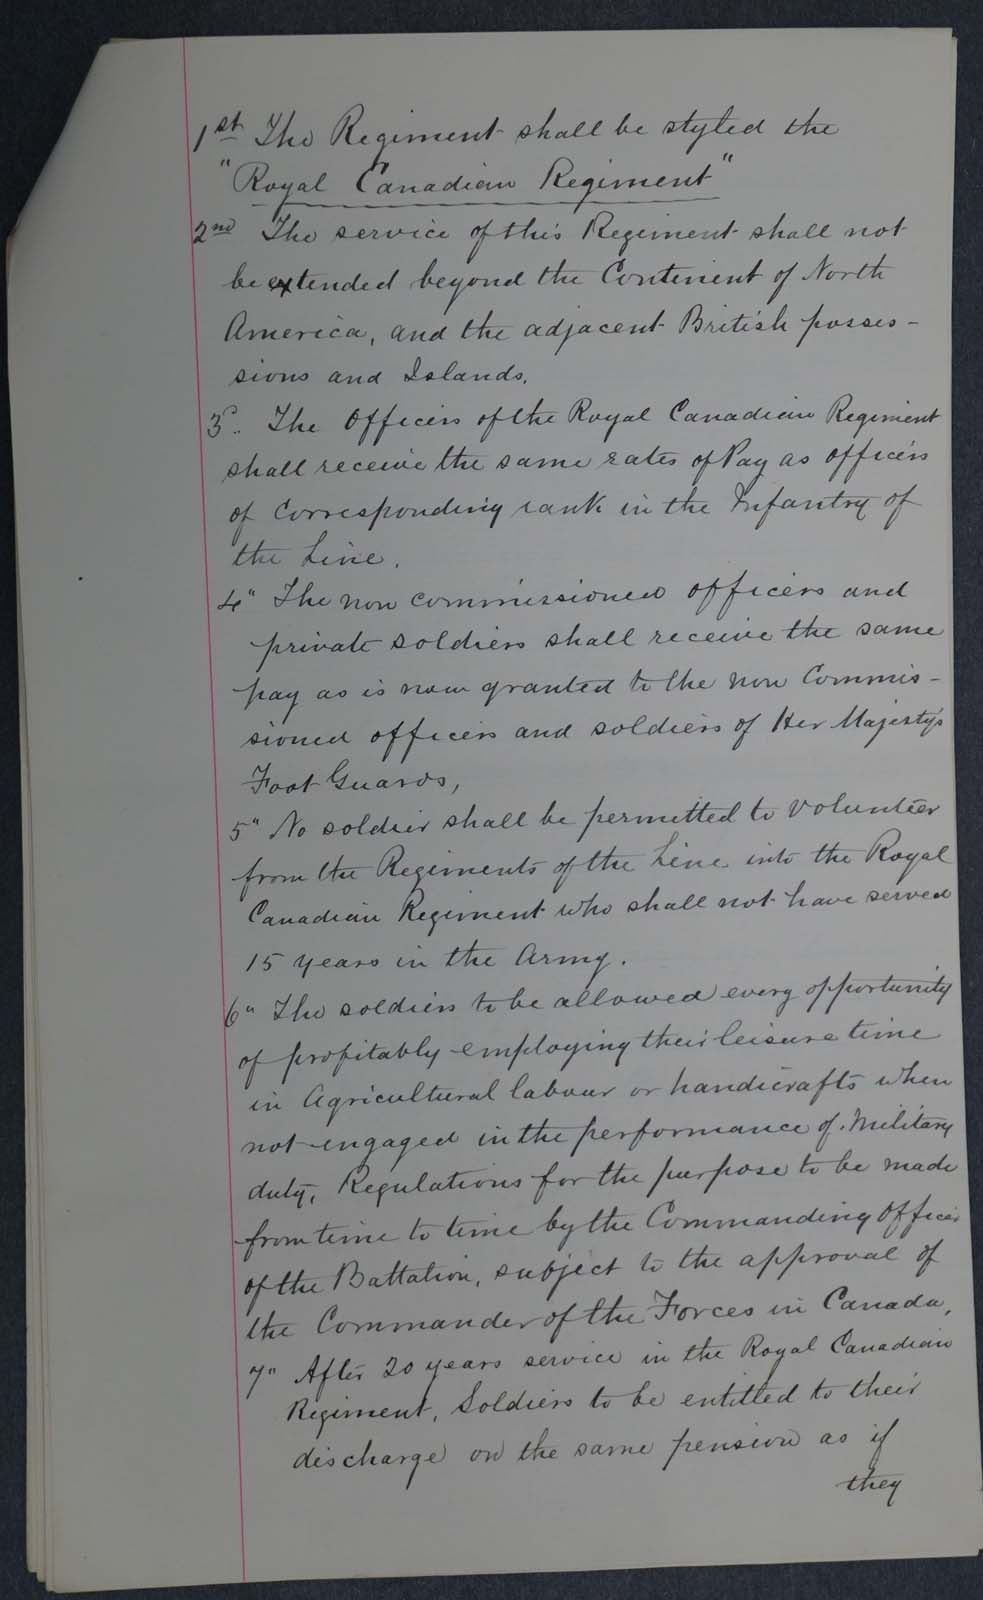 1st The Regiment shall be styled the
"Royal Canadian Regiment"
2nd The service of this Regiment shall not
be extended beyond the Continent of North
America, and the adjacent British posses-
sions and Islands.
3". The Officers of the Royal Canadian Regiment
shall receive the same rates of Pay as officers
of corresponding rank in the Infantry of
the Line.
4" The non commissioned officers and
private soldiers shall receive the same
pay as is now granted to the non Commis-
sioned officers and soldiers of Her Majesty's
Foot Guards,
5" No soldier shall be permitted to volunteer
from the Regiments of the Line into the Royal
Canadian Regiment who shall not have served
15 years in the Army.
6" The soldiers to be allowed every opportunity
of profitably employing their leisure time
in Agricultural labour or handicrafts when
not engaged in the performance of Military
duty, Regulations for the purpose to be made
from time to time by the Commanding Officer
of the Battalion, subject to the approval of
the Commander of the Forces in Canada,
7" After 20 years service in the Royal Canadian
Regiment, Soldiers to be entitled to their
discharge on the same pension as if
they